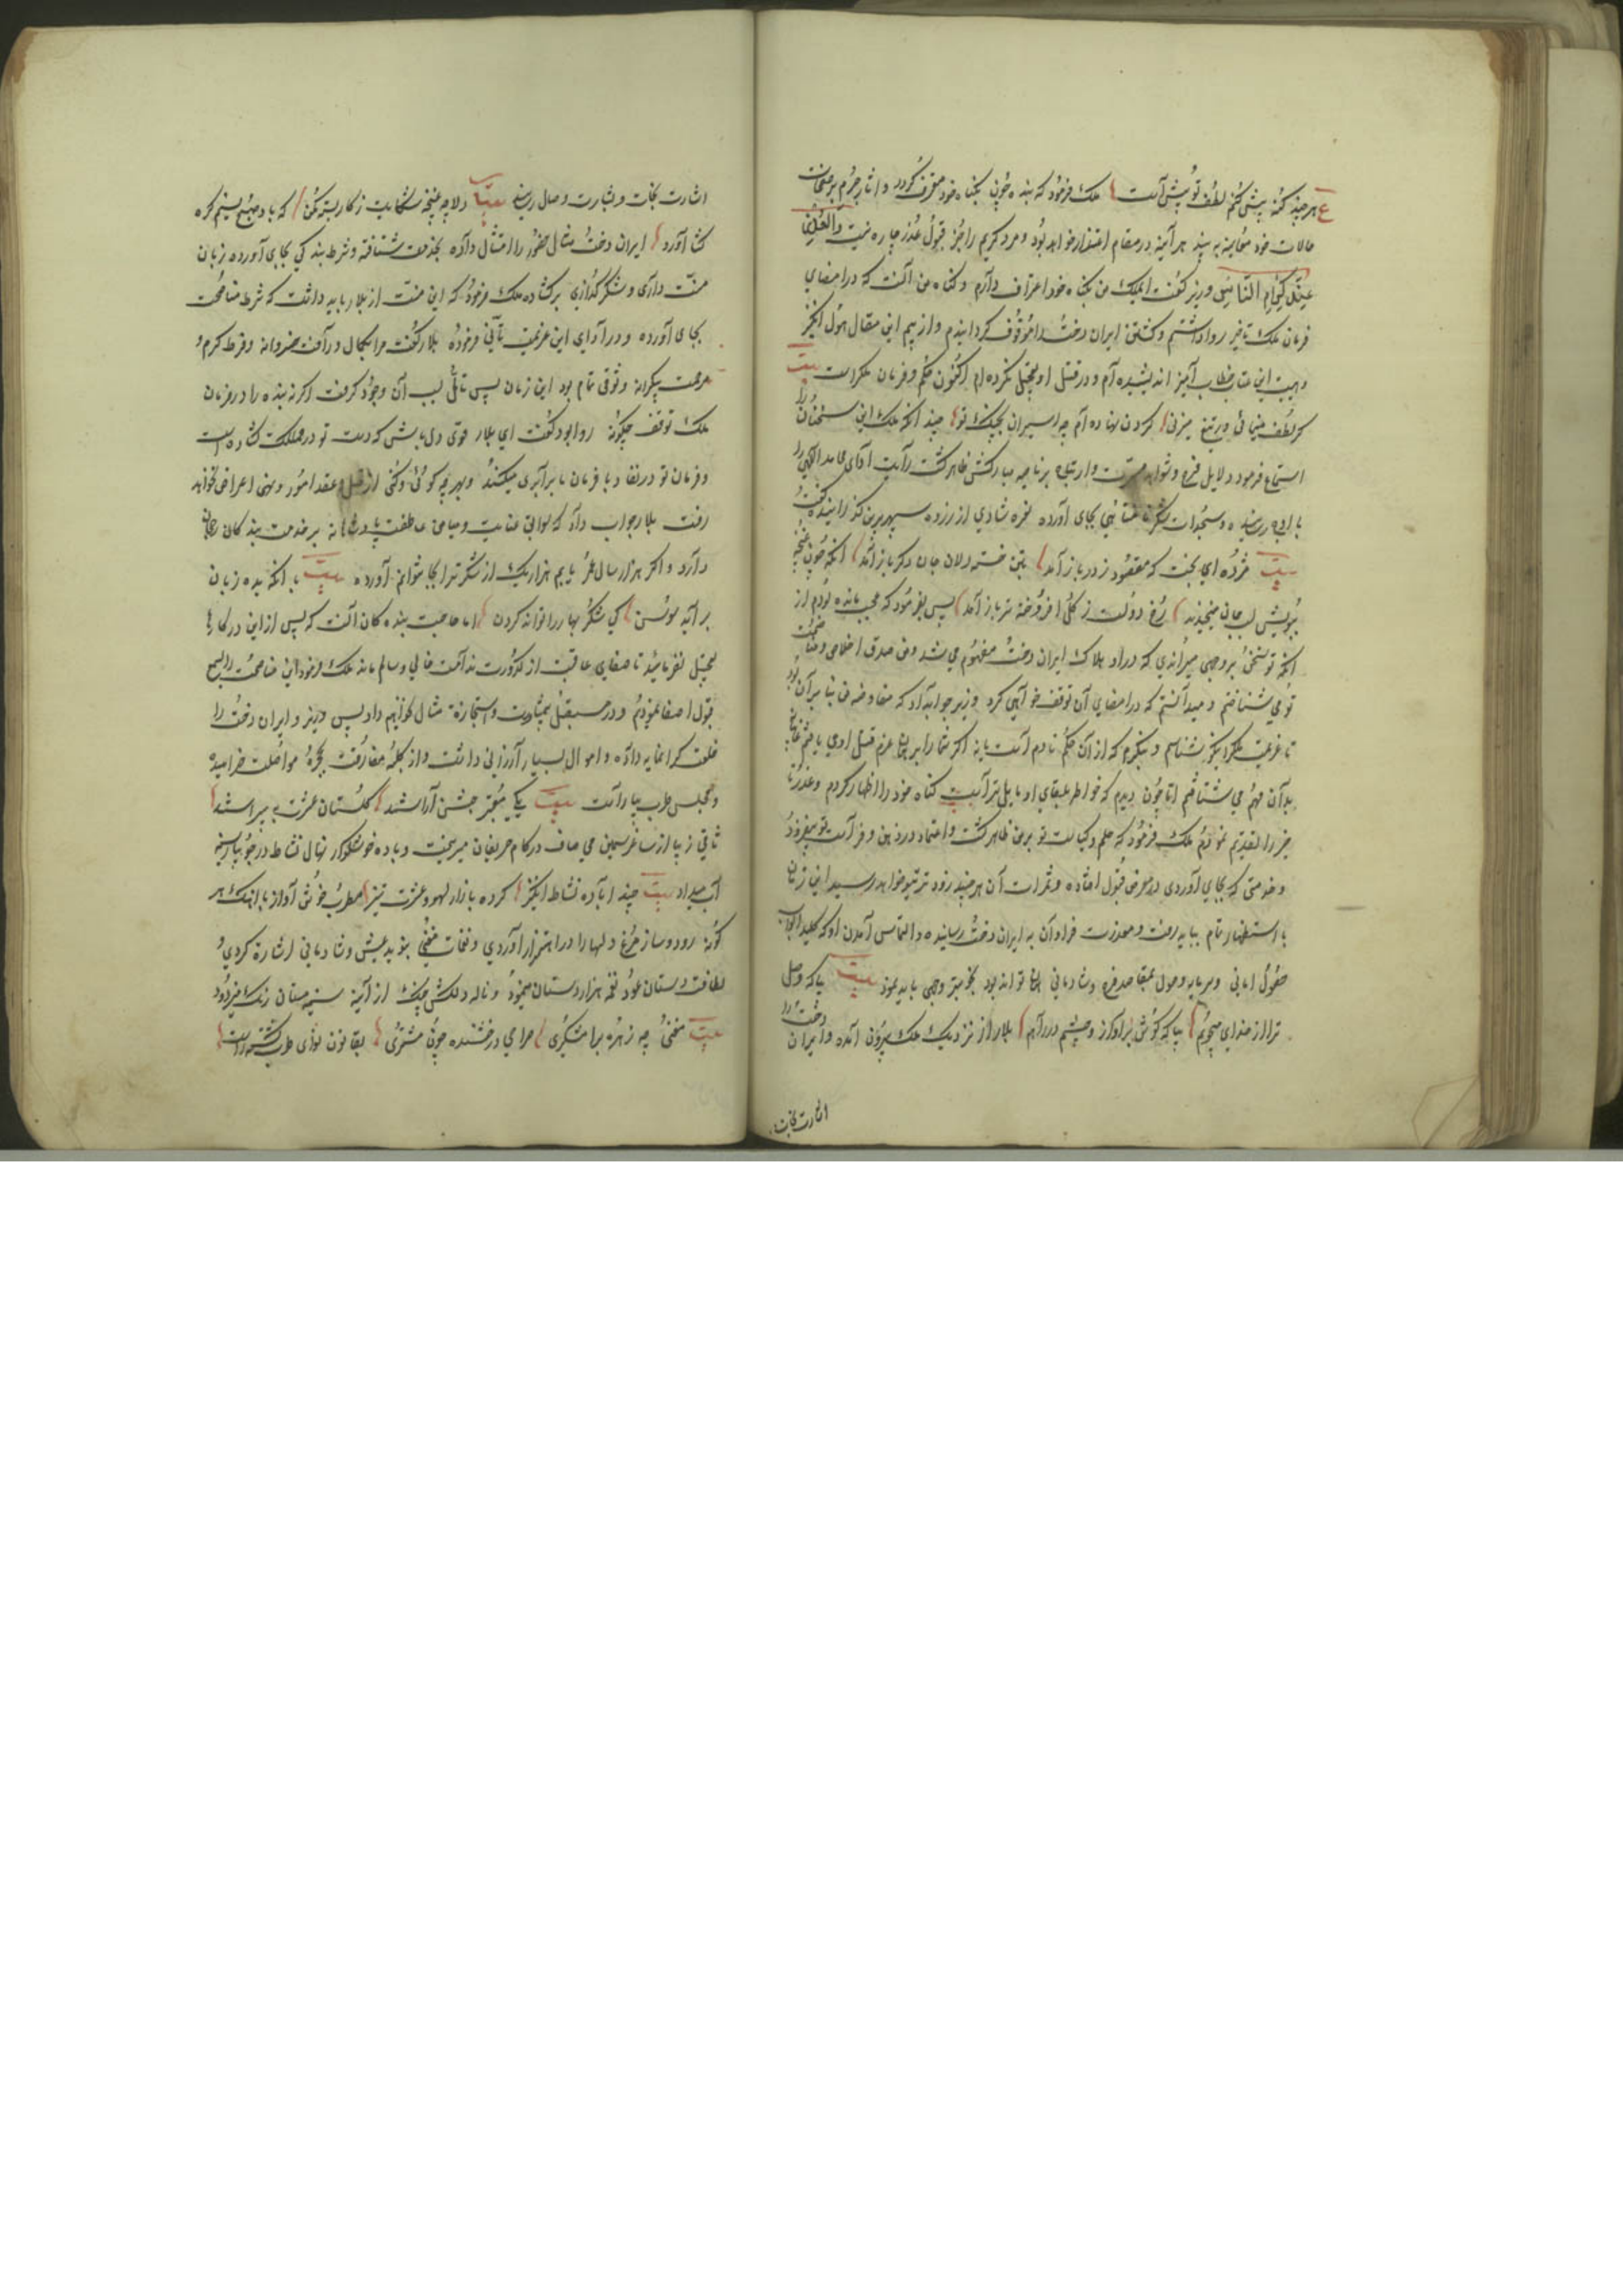 ع هر چند گنه بیش کنم لطف تو بیش است ملک فرمود که بنده چون بگناه خود معترف گردد و آثار جرم بر صفحات
حالات خود معاینه به بیند هر آینه در مقام اعتذار خواهد بود و مرد کریم را جز قبول عذر چاره نیست والعذر
عند کرام الناس وزیر گفت ای ملک من بگناه خود اعتراف دارم و گناه من آنست که در امضای
فرمان ملک تاخیر روا داشتم و کشتن ایران دخت را موقوف گردانیدم و از بیم این مقال هول انگیز
و هیبت این عتاب خطاب آمیز اندیشیده ام و در قتل او تعجیل نکرده ام اکنون حکم و فرمان ملکراست بیت
گر لطف مینمائی ور تیغ میزنی گردن نهاده ام چه اسیران بچنگ تو چند آنکه ملک این سخنان را
استماع فرمود دلایل فرح و شواهد مسرت و ارتیاح بر ناصیه مبارکش ظاهر گشت رایت ادای محامد الهی را
باوج رسانیده و سجدات شکر نامتناهی بجای آورده نعره شادی از زروه سپهر برین گذرانیده گفت
بیت مژده ای بخت که مقصود ز در باز آمد بتن خسته دلان جان دگر باز آمد آنکه چون غنچه
ببویش لب جانی میخندید رخ دولت ز گل افروخته تر باز آمد پس بفرمود که عجب مانده بودم از
آنکه تو سخن بر وجهی میراندی که در او هلاک ایران دخت مفهوم می شد و من صدق اخلاص و مناصحت
تو می شناختم و میدانستم که در امضای آن توقف خواهی کرد وزیر جواب داد که مفاوضه من بنا بر آن بود
تا عزیمت ملک را نیکو بشناسم و بنگرم که از آن حکم نادم است یا نه اگر شما را بر همان عزم قتل او می یافتم
بدان مهم می شتافتم اما چون دیدم که خواطر ببقای او مایل تر است گناه خود را اظهار کردم و عذر
خیر را تقدیم نمودم ملک فرمود که حلم و کیاست تو بر من ظاهر گشت و اعتماد در ذهن و فراست تو بیفزود
و خدمتی که بجای آوردی در معرض قبول افتاده و ثمرات آن هر چند زود تر بتو خواهد رسید این زمان
با استظهار تمام بباید رفت و معذرت فراوان به ایران دخت رسانیده و التماس آمدن او که کلید ابواب
حصول امانی و سرمایه وصول بمقاصد فرح و شادمانی همان تواند بود بخوبتر وجهی باید نمود بیت بیا که وصل
ترا از خدای میجویم بیا که گوش بر آواز و چشم بر راهم بلار از نزدیک ملک بیرون آمده و ایران دخت را
اشارت نجات
اشارت نجات و بشارت وصال رسانید بیت دلا چو غنچه شکایت ز کار بسته مکن که باد صبح نسیم گره
گشا آورد ایران دخت مثال حضور را امتثال داده بخدمت شتافته و شرط بندگی بجای آورده زبان
منت داری و شکر گذاری بر گشاد ملک فرمود که این منت از بلار باید داشت که شرط مناصحت
بجای آورده و در ادای این عزیمت تأنی فرموده بلار گفت مرا بکمال و رأفت خسروانه و فرط کرم و
مرحمت بیکرانه وثوقی تمام بود این زمان پس تأمل بسبب آن وجود گرفت اگر نه بنده را در فرمان
ملک توقف چگونه روا بود گفت ای بلار قوی دل باش که دست تو در مملکت گشاده است
و فرمان تو در نفاذ با فرمان ما برابری میکند و بهر چه گوئی و کنی از حل و عقد امور و نهی اعراضی نخواهد
رفت بلار جواب داد که سوابق عنایت و میامن عاطفت پادشاهانه بر خدمت بندگان رجحان
دارد و اگر هزار سال عمر یابیم هزار یک از شکر ترا بجا نتوانم آورده بیت با آنکه بده زبان
بر آید سوسن کی شکر بهار را تواند کردن اما حاجت بنده گان آنست که پس از این در کارها
تعجیل نفرمایند تا صفای عاقبت از کدورت ندامت خالی و سالم ماند ملک فرمود این مناصحت را بسمع
قبول اصغا نمودم و در مستقبل بیمشاورت و استجازه مثال نخواهم داد پس وزیر و ایران دخت را
خلعت گرانمایه داده و اموال بسیار ارزانی داشت و از کلبه مفارقت بحجره مواصلت خرامیده
و مجلس طرب بیاراست بیت یکی نغز جشن آراسته گلستان عشرت بپیراسته
ساقی زیبا از ساغر سیمین می صاف در کام حریفان میریخت و باده خوشگوار نهال نشاط در جویبار سینه
آب میداد بیت چند اباده نشاط انگیز کرده بازار لهو و عشرت تیز مطرب خوش آواز باهنگ هر
گونه رود و ساز مرغ دلها را در اهتزاز آوردی و نغمات مغنی بنوید عیش و شادمانی اشارة کردی
لطافت دستان عود نغمه هزار دستان مینمود و ناله دلکش چنگ از آینه سینه مستان زنگ میزدود
بیت مغنی چه زهره برامشگری مراحی درخشنده چون مشتری بقانون نوای طرب گشته راست